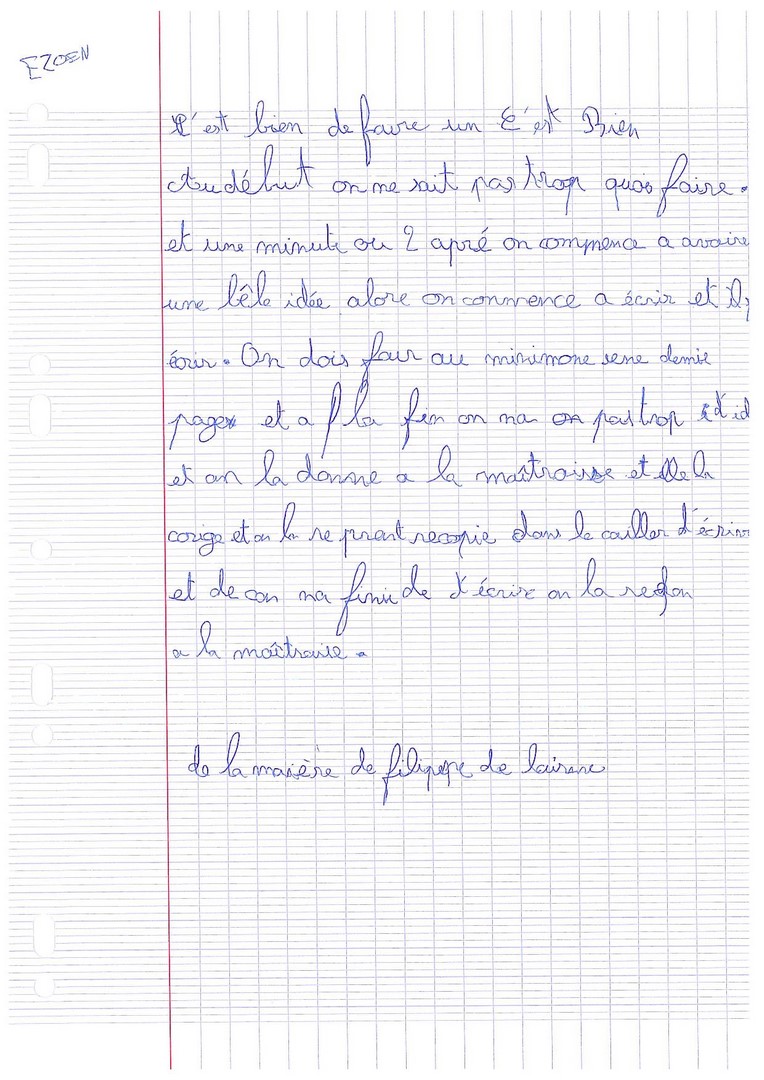 EZOEN
C'est bien de faire un C'est Bien
Au début on ne sait pas trop quoi faire.
et une minute ou 2 apré on commence a avaire
une bêle idée alore on commence a écrir et
écrir. On dois fair au minimone une demie
page et a la fin on na on pas trop d'id
et on la donne a la maîtraisse et elle la
corige et on la re prent recopie dans le cailler d'écrir
et de con na fini de d'écrire on la
a la maîtraise.
de la manière de filippe de lairene